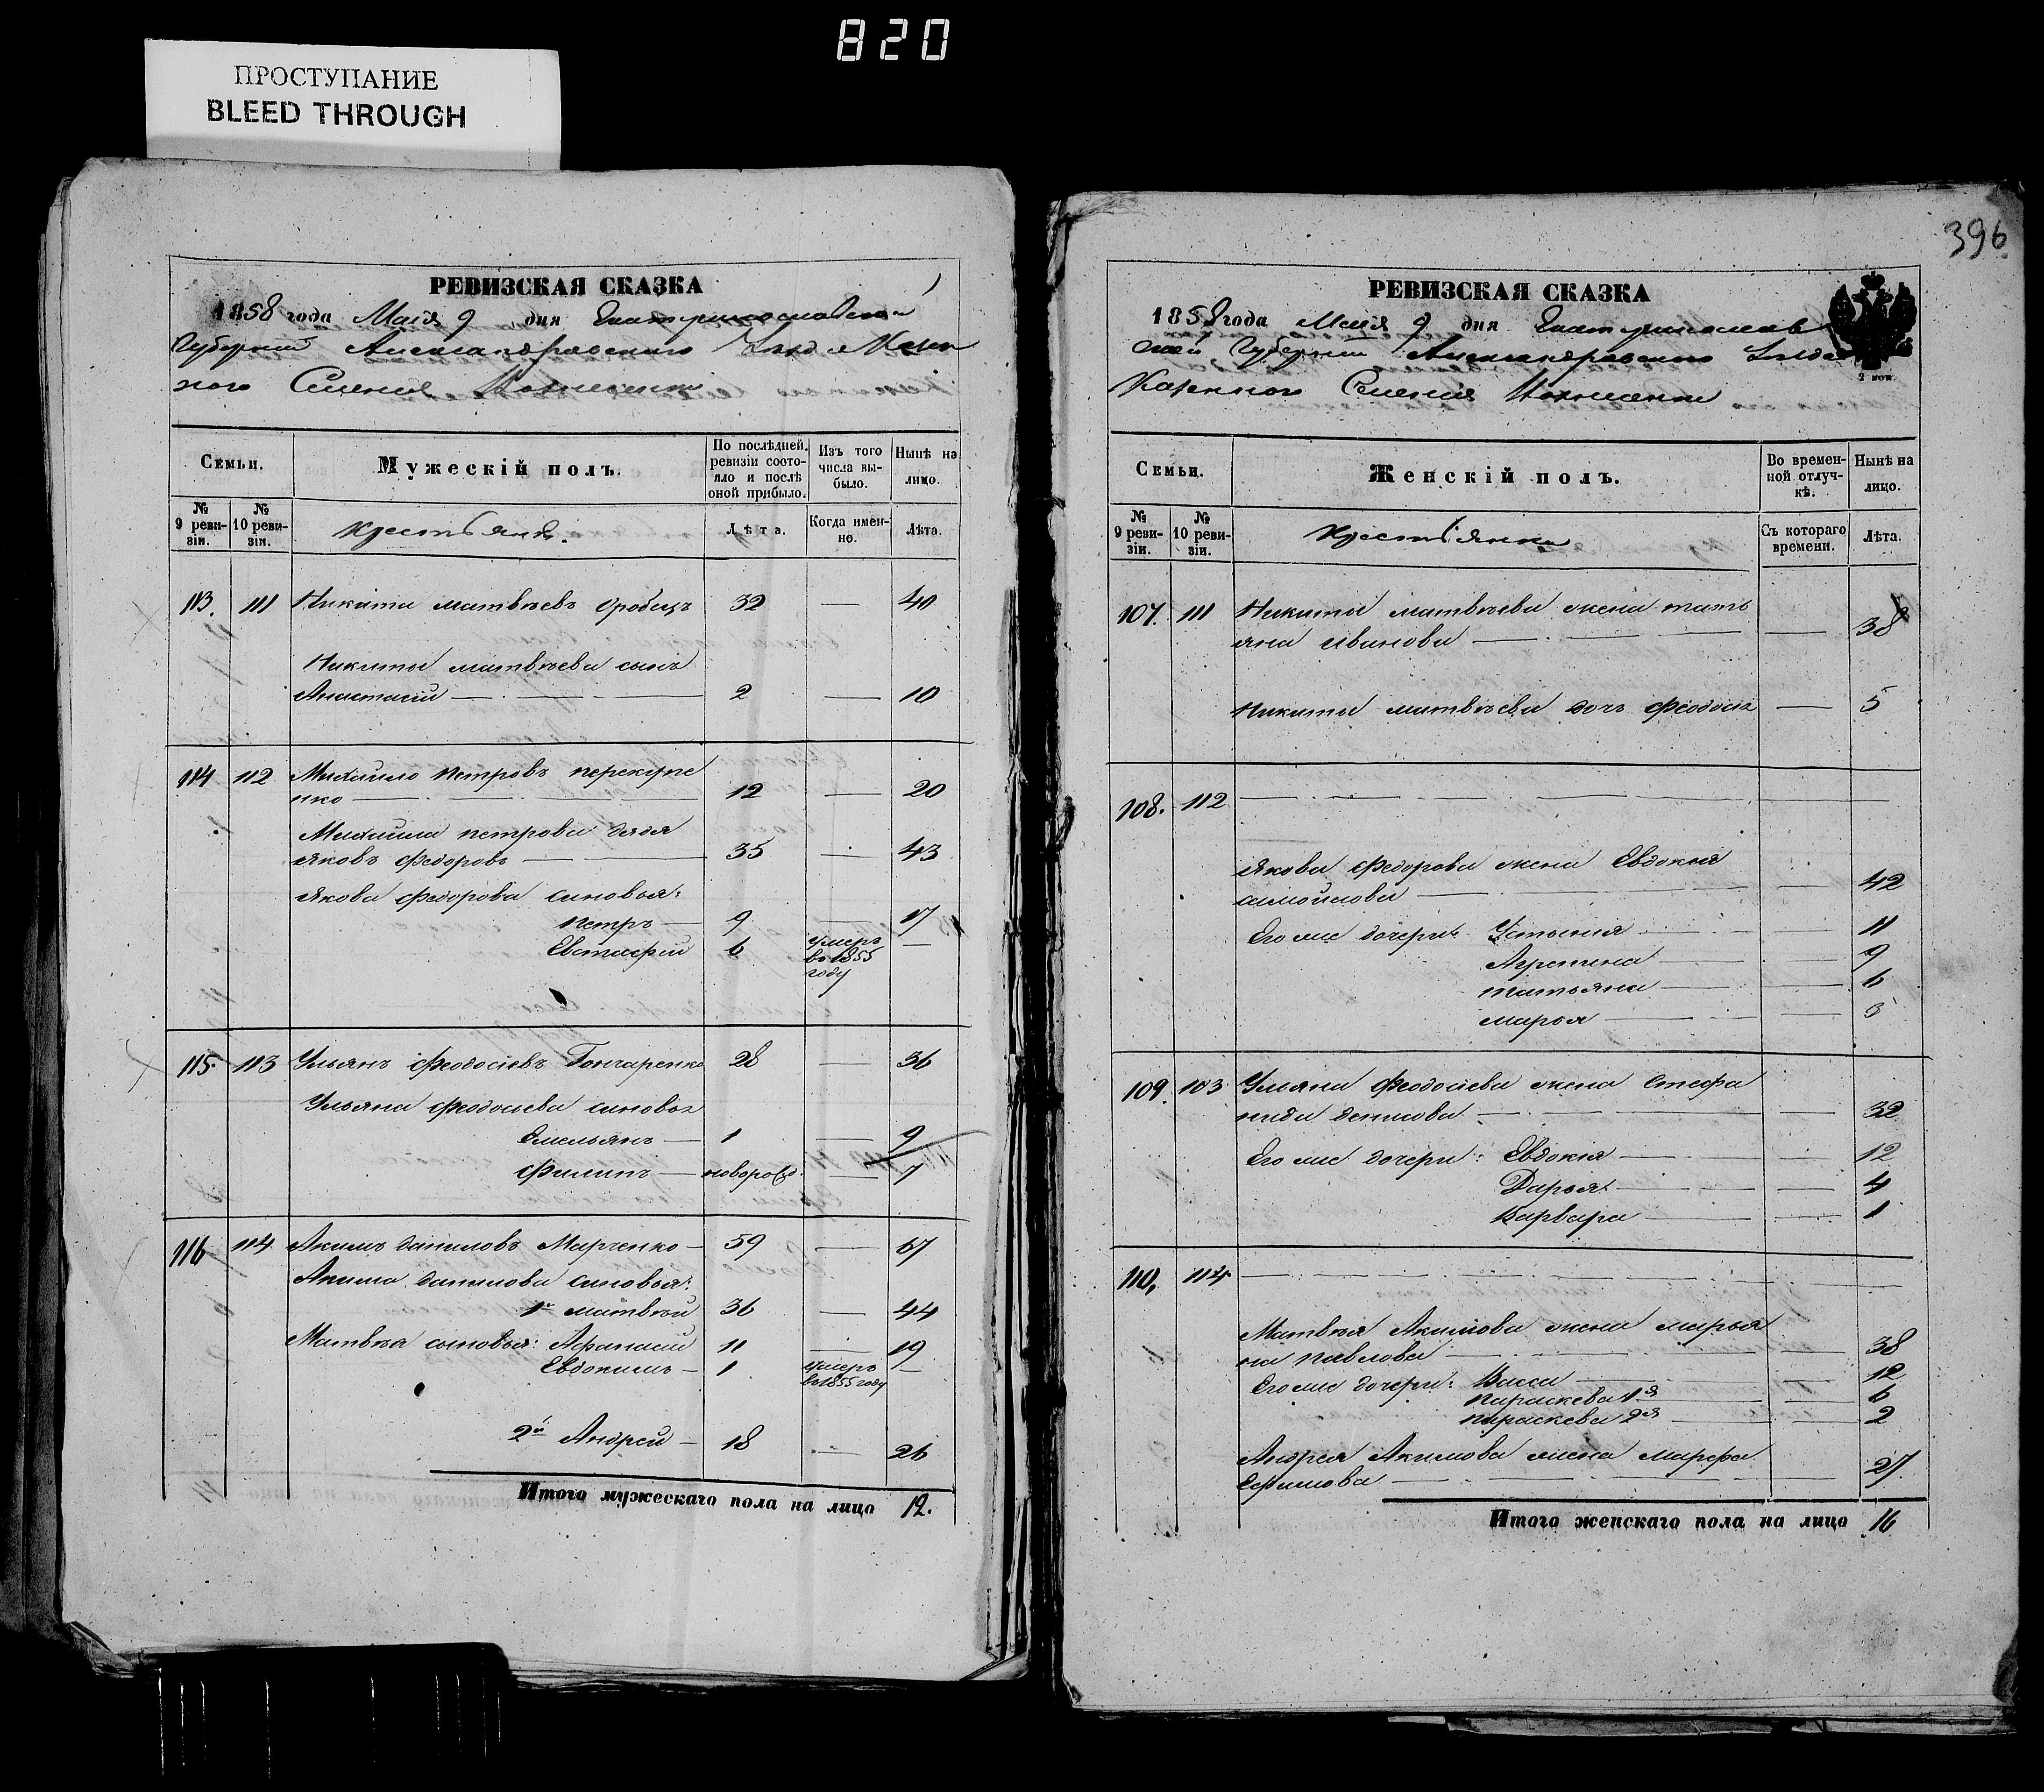 820
ПРОСТУПАНИЕ
BLEED THROUGH
РЕВИЗСКАЯ СКАЗКА
1858 года Маія 9 дня Екатеринославской
Губерніи Александровскаго Уезда Казен
ного Селенія
Семьи.
Мужескій полъ.
По послѣдней ревизіи состояло и послѣ оной прибыло.
Изъ того числа выбыло.
Нынѣ на лицо.
№ 9 ревизіи.
№ 10 ревизіи.
Крестьяне.
Лѣта.
Когда именно.
Лѣта.
113. 111 Никита Матвѣевъ Оробецъ 32 — 40
Никиты Матвѣева сынъ
Анастасій — 2 — 10
114 112 Михайло Петровъ Перекупе
нко — 12 — 20
Михайла Петрова дядя
Яковъ Федоровъ — 35 — 43
Якова Федорова сыновья:
Петръ — 9 — 17
Евстафій 6 умеръ в 1855 году —
115. 113 Ульянъ Феодосіевъ Гончаренко 28 — 36
Ульяна Феодосіева сыновья
Емельянъ — 1 — 9
Филипъ — новорожд. — 7
116 114 Акимъ Даниловъ Марченко — 59 — 67
Акима Данилова сыновья:
1й Матвѣй 36 — 44
Матвѣя сыновья: Афанасій 11 — 19
Евдокимъ — 1 умеръ в 1855 году —
2й Андрей — 18 — 26
Итого мужескаго пола на лицо 12.
396
РЕВИЗСКАЯ СКАЗКА
1858 года Маія 9 дня Екатеринослав
ской Губерніи Александровского Уезда
Казенного Селенія
2 коп.
Семьи.
Женскій полъ.
Во временной отлучкѣ.
Нынѣ на лицо.
№ 9 ревизіи.
№ 10 ревизіи.
Крестьянки
Съ котораго времени.
Лѣта.
107. 111 Никиты Матвѣева жена Тать
яна Иванова — — 38
Никиты Матвѣева дочь Феодосія — 5
108. 112 —
Якова Федорова жена Евдокия
Самойлова — — 42
Его же дочери: Устинія — — 11
Агрепина — — 9
Татьяна — — 6
Марья — — 3
109. 113 Ульяна Феодосіева жена Стефа
нида Денисова — — 32
Его же дочери: Евдокія — — 12
Дарья — — 4
Варвара — — 1
110. 114 —
Матвѣя Акимова жена Марья
на Павлова — — 38
Его же дочери: Васса — — 12
Параскева 1я — — 6
Параскева 2я — — 2
Андрея Акимова жена Марфа
Ефимова — — 27
Итого женскаго пола на лицо 16